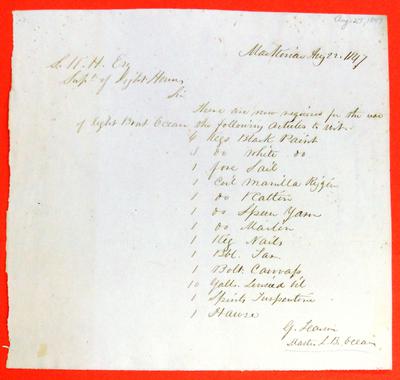 Aug 23, 1847
Aug 22. 1847
S. P. H. Esq
Supt. of Light Houses
Sir
There are now required for the use
of Light Boat Ocean the following Articles to wit.
Kegs Black Paint
3 do White do
1 fore Sail
1 Coil Manilla
1 do Ratlin
1 do Spun Yarn
1 do Marlin
1 Keg Nails
1 Bbl. Tar
1 Bolt Canvass
10 Galls. Linseed Oil
1 Spirits Turpentine
1 Hawser
G.
Master L. B. Ocean